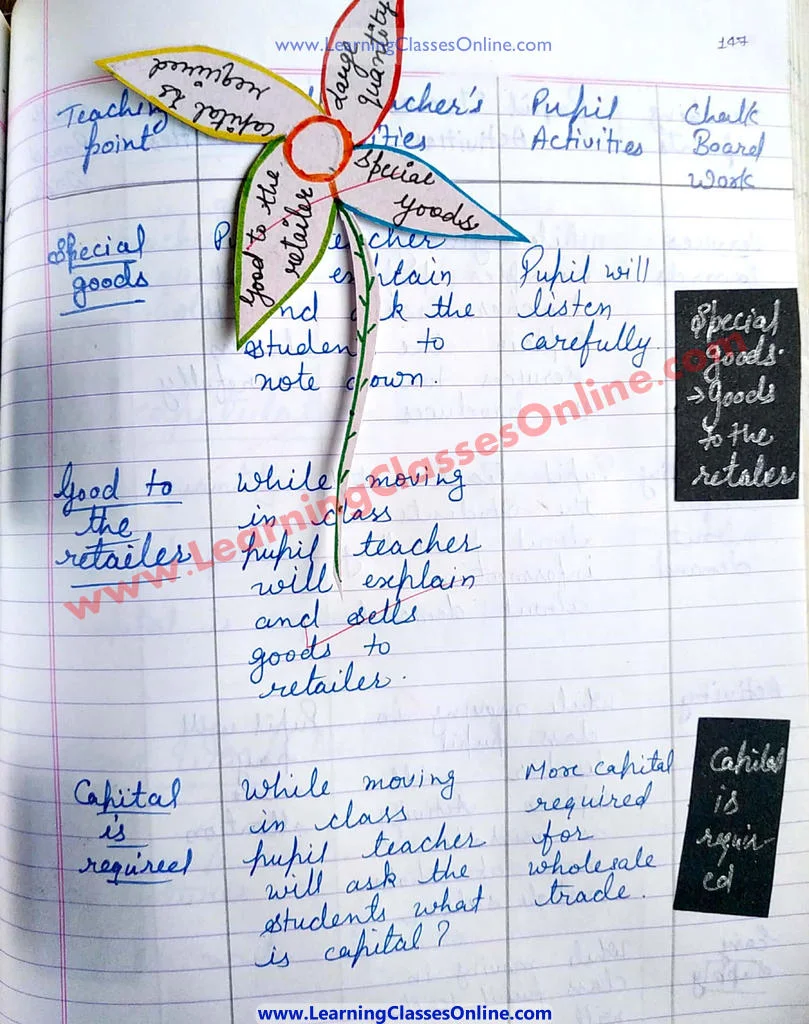 www.LearningClassesOnline.com
147
Large
quantity
capital is
required
Special
goods
Good to the
retailer
Teaching
point
Pupil
Activities
Chalk
Board
Work
Special
goods
note down.
Pupil will
listen
carefully.
Special
goods.
→ goods
to the
retaler
Good to
the
retailer
While moving
in class
pupil teacher
will explain
and sells
goods to
retailer.
Capital
is
required
While moving
in class
pupil teacher
will ask the
students what
is capital?
More capital
required
for
wholesale
trade.
Capital
is
requir-
ed
www.LearningClassesOnline.com
www.LearningClassesOnline.com